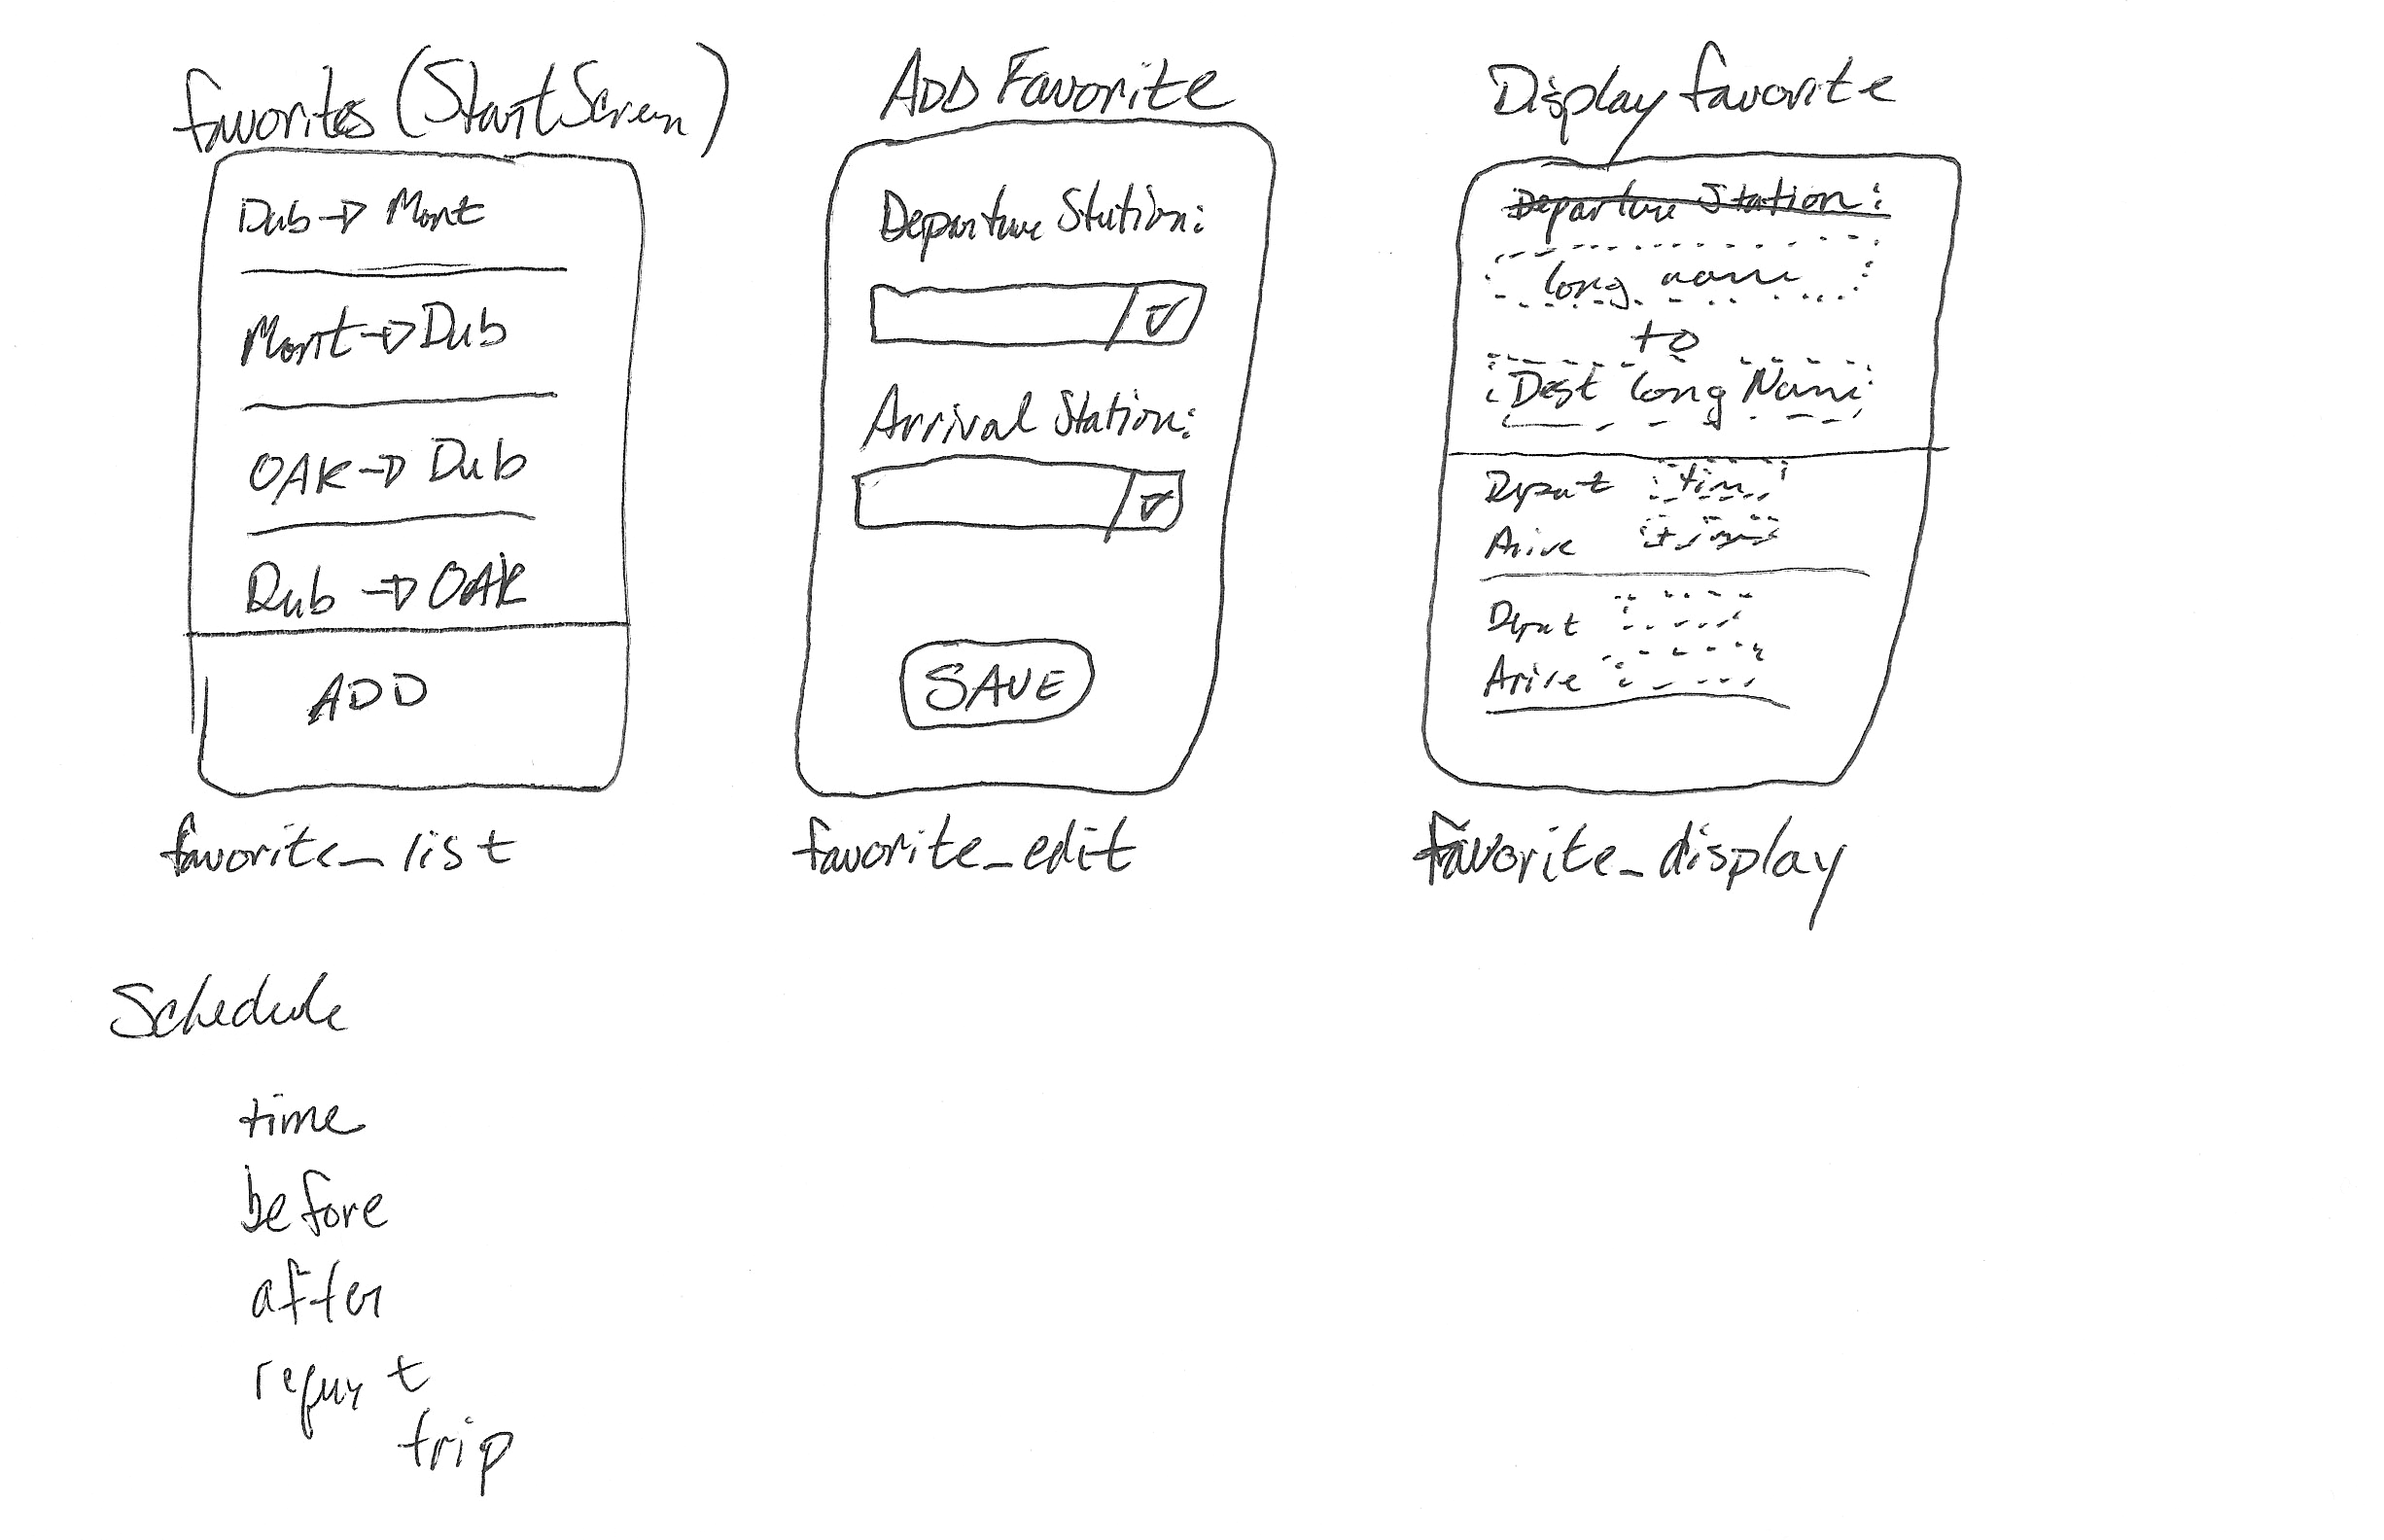 favorites (Start Screen)
Dub → Mont
Mont → Dub
OAK → Dub
Dub → OAK
ADD
favorite_list
ADD Favorite
Departure Station:
Arrival Station:
SAVE
favorite_edit
Display favorite
Departure Station:
long name
to
Dest long Name
Depart time
Arive time
Depart
Arive
favorite_display
Schedule
time
before
after
request
trip